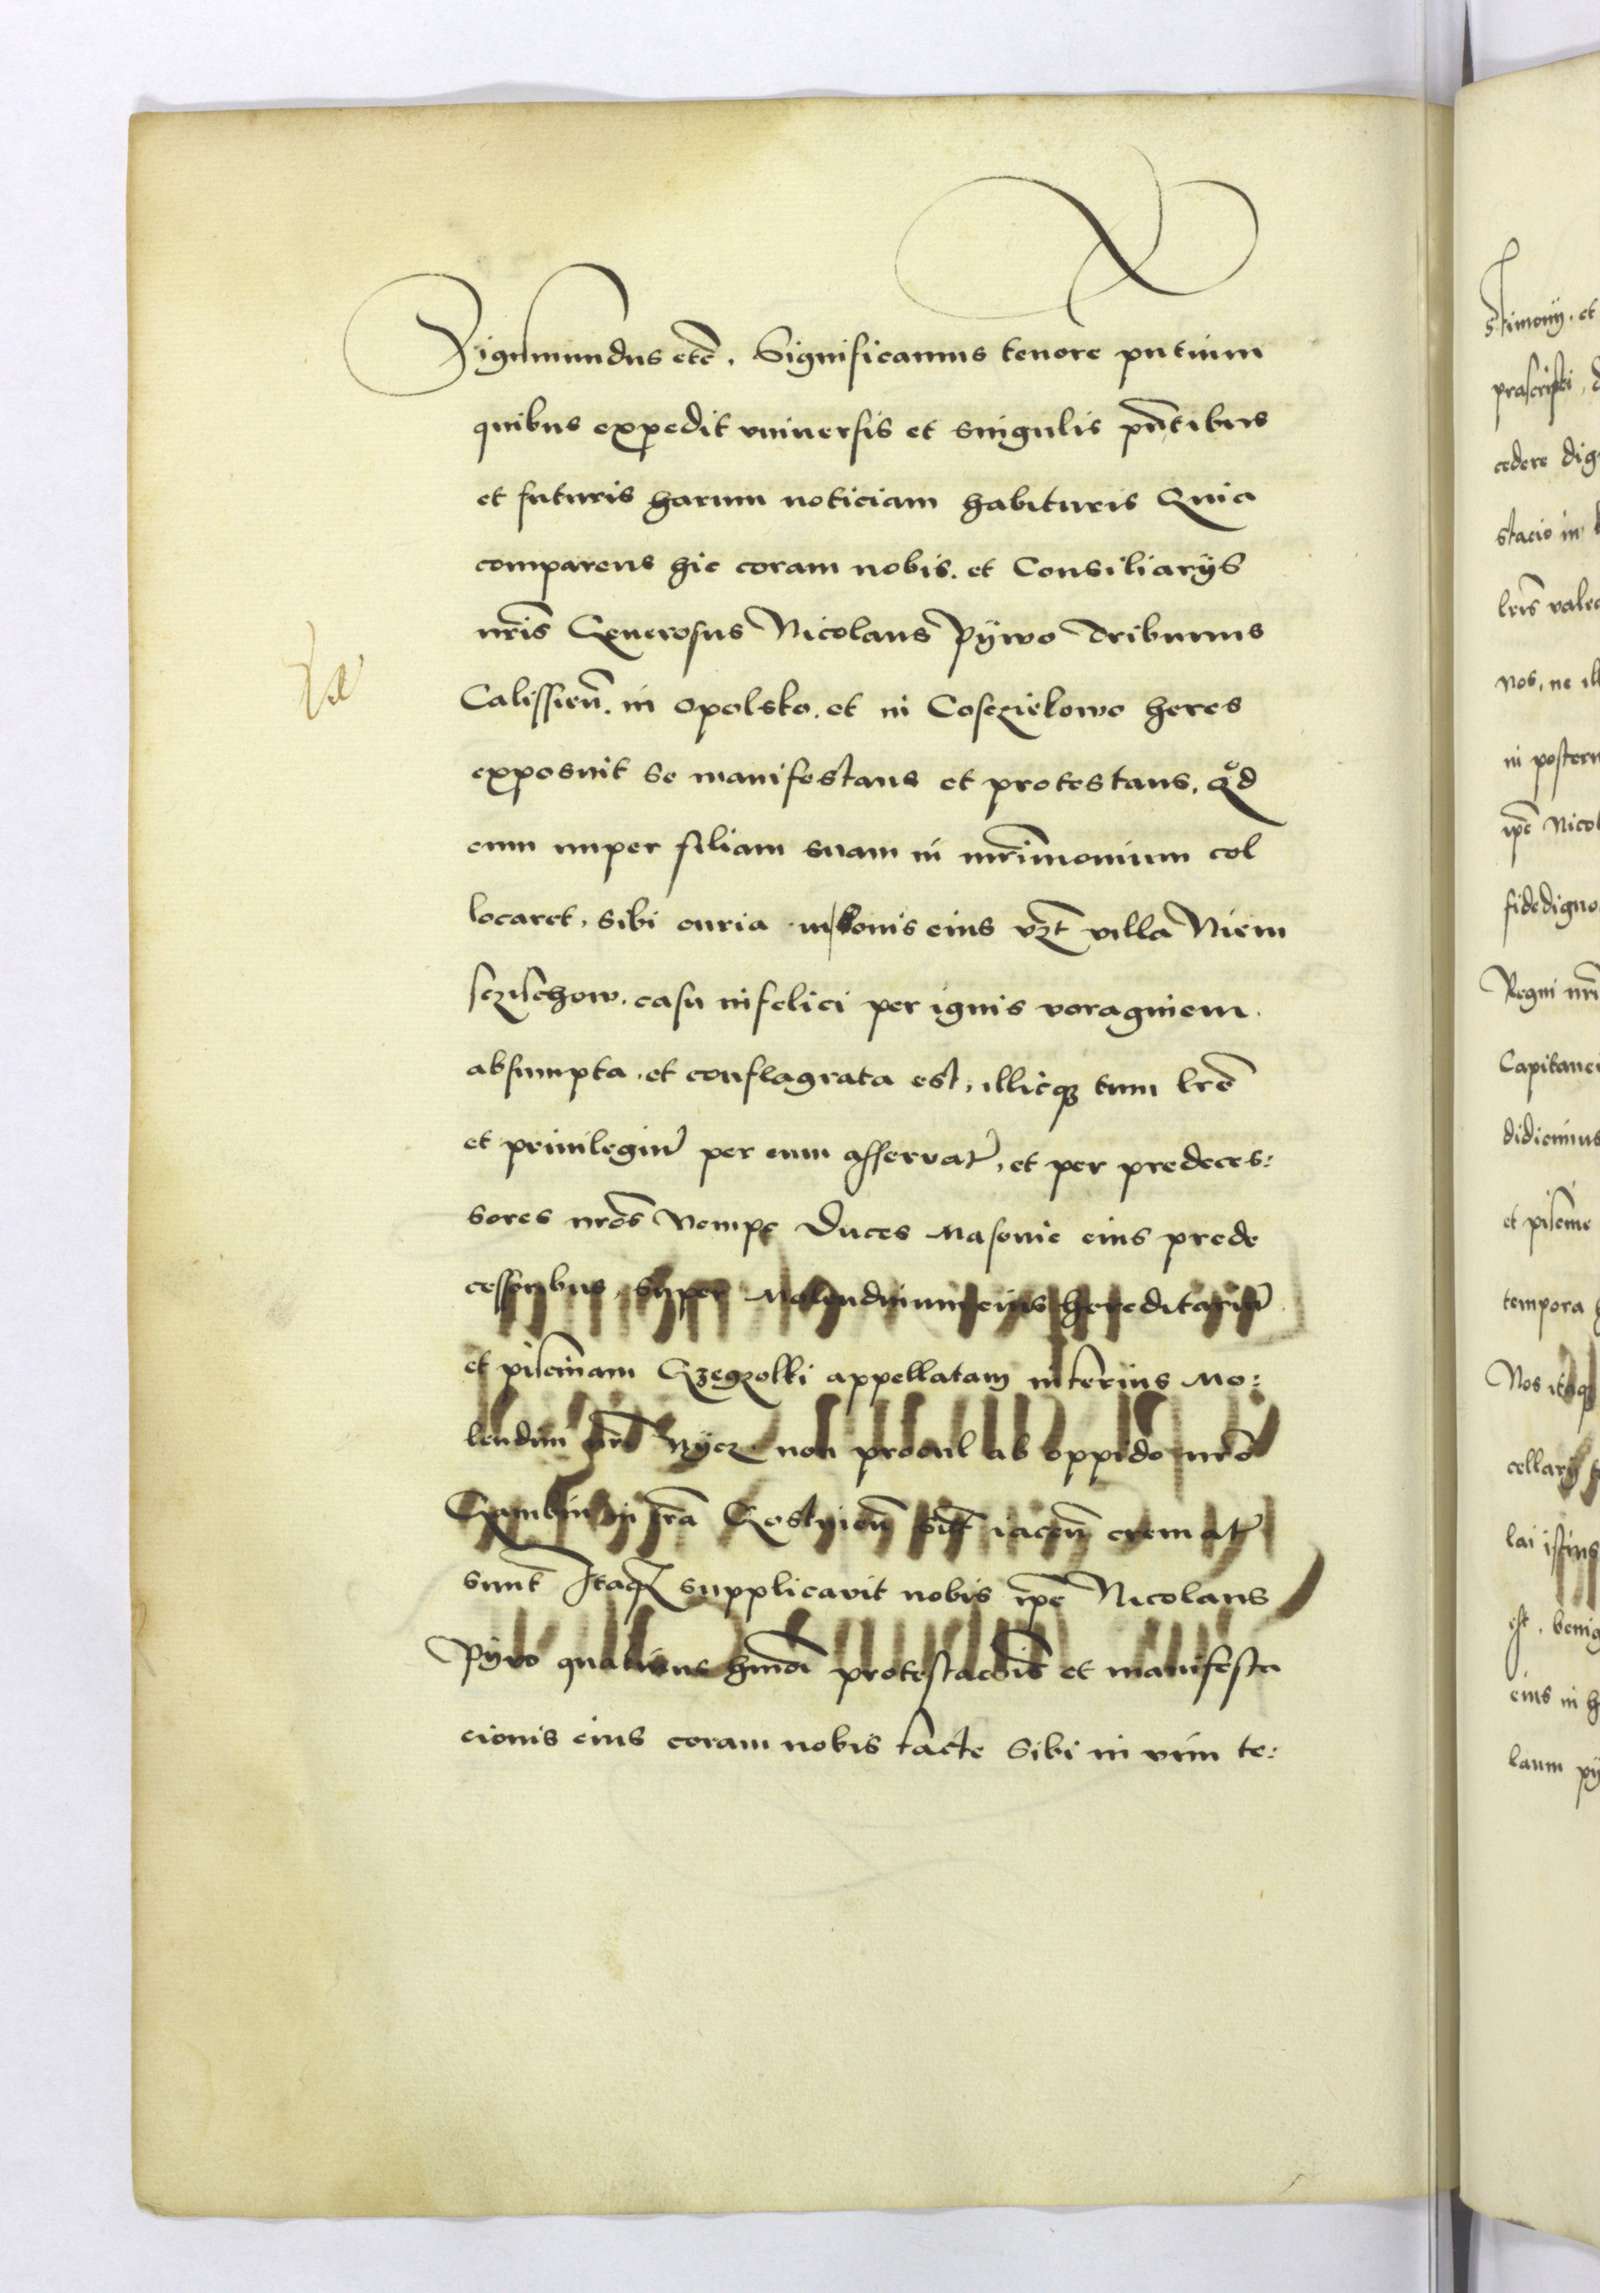 Sigismundus etc̄. Significamus tenore pn̄tium
quibus expedit vniuersis et singulis pn̄tibus
et futuris harum noticiam habituris Quia
comparens hic coram nobis. et Consiliarÿs
nr̄is Generosus Nicolaus Pÿwo Tribunus
Calissien̄. in Opolsko. et in Cosczielowo heres
exposuit se manifestans et protestans, Qd
cum nuper filiam suam in mr̄imonium col
locaret, sibi curia in bonis eius vz̄t villa Niem
sczichow. casu infelici per ignis voraginem
absumpta, et conflagrata est, illicqz tum lr̄e
et priuilegiū per eum asservat̄, et per predeces:
sores nr̄os Nempe Duces Masouie eius prede
cessoribus, super Molendinum eius hereditariū
et piscinam appellatam inferius Mo:
lendini nr̄i non procul ab oppido nr̄o
Gambin in tr̄a Gostinien̄ sit̄ iacen̄ cremat̄
sunt Itaqz supplicavit nobis ip̄e Nicolaus
Pÿwo quatinus hmōi protestacōis et manifesta
cionis eius coram nobis facte sibi in vim te:
stimonÿ. et
prascripti,
cedere dig
stacio in
lr̄is vale
nos, ne ill
in poster
ip̄e Nicol
fidedigno
Regni nr̄i
Capitanei
didicimus
et piscine
tempora
Nos itaqz
cellarÿ
lai istius
est. benig
eius in h
laum pÿ